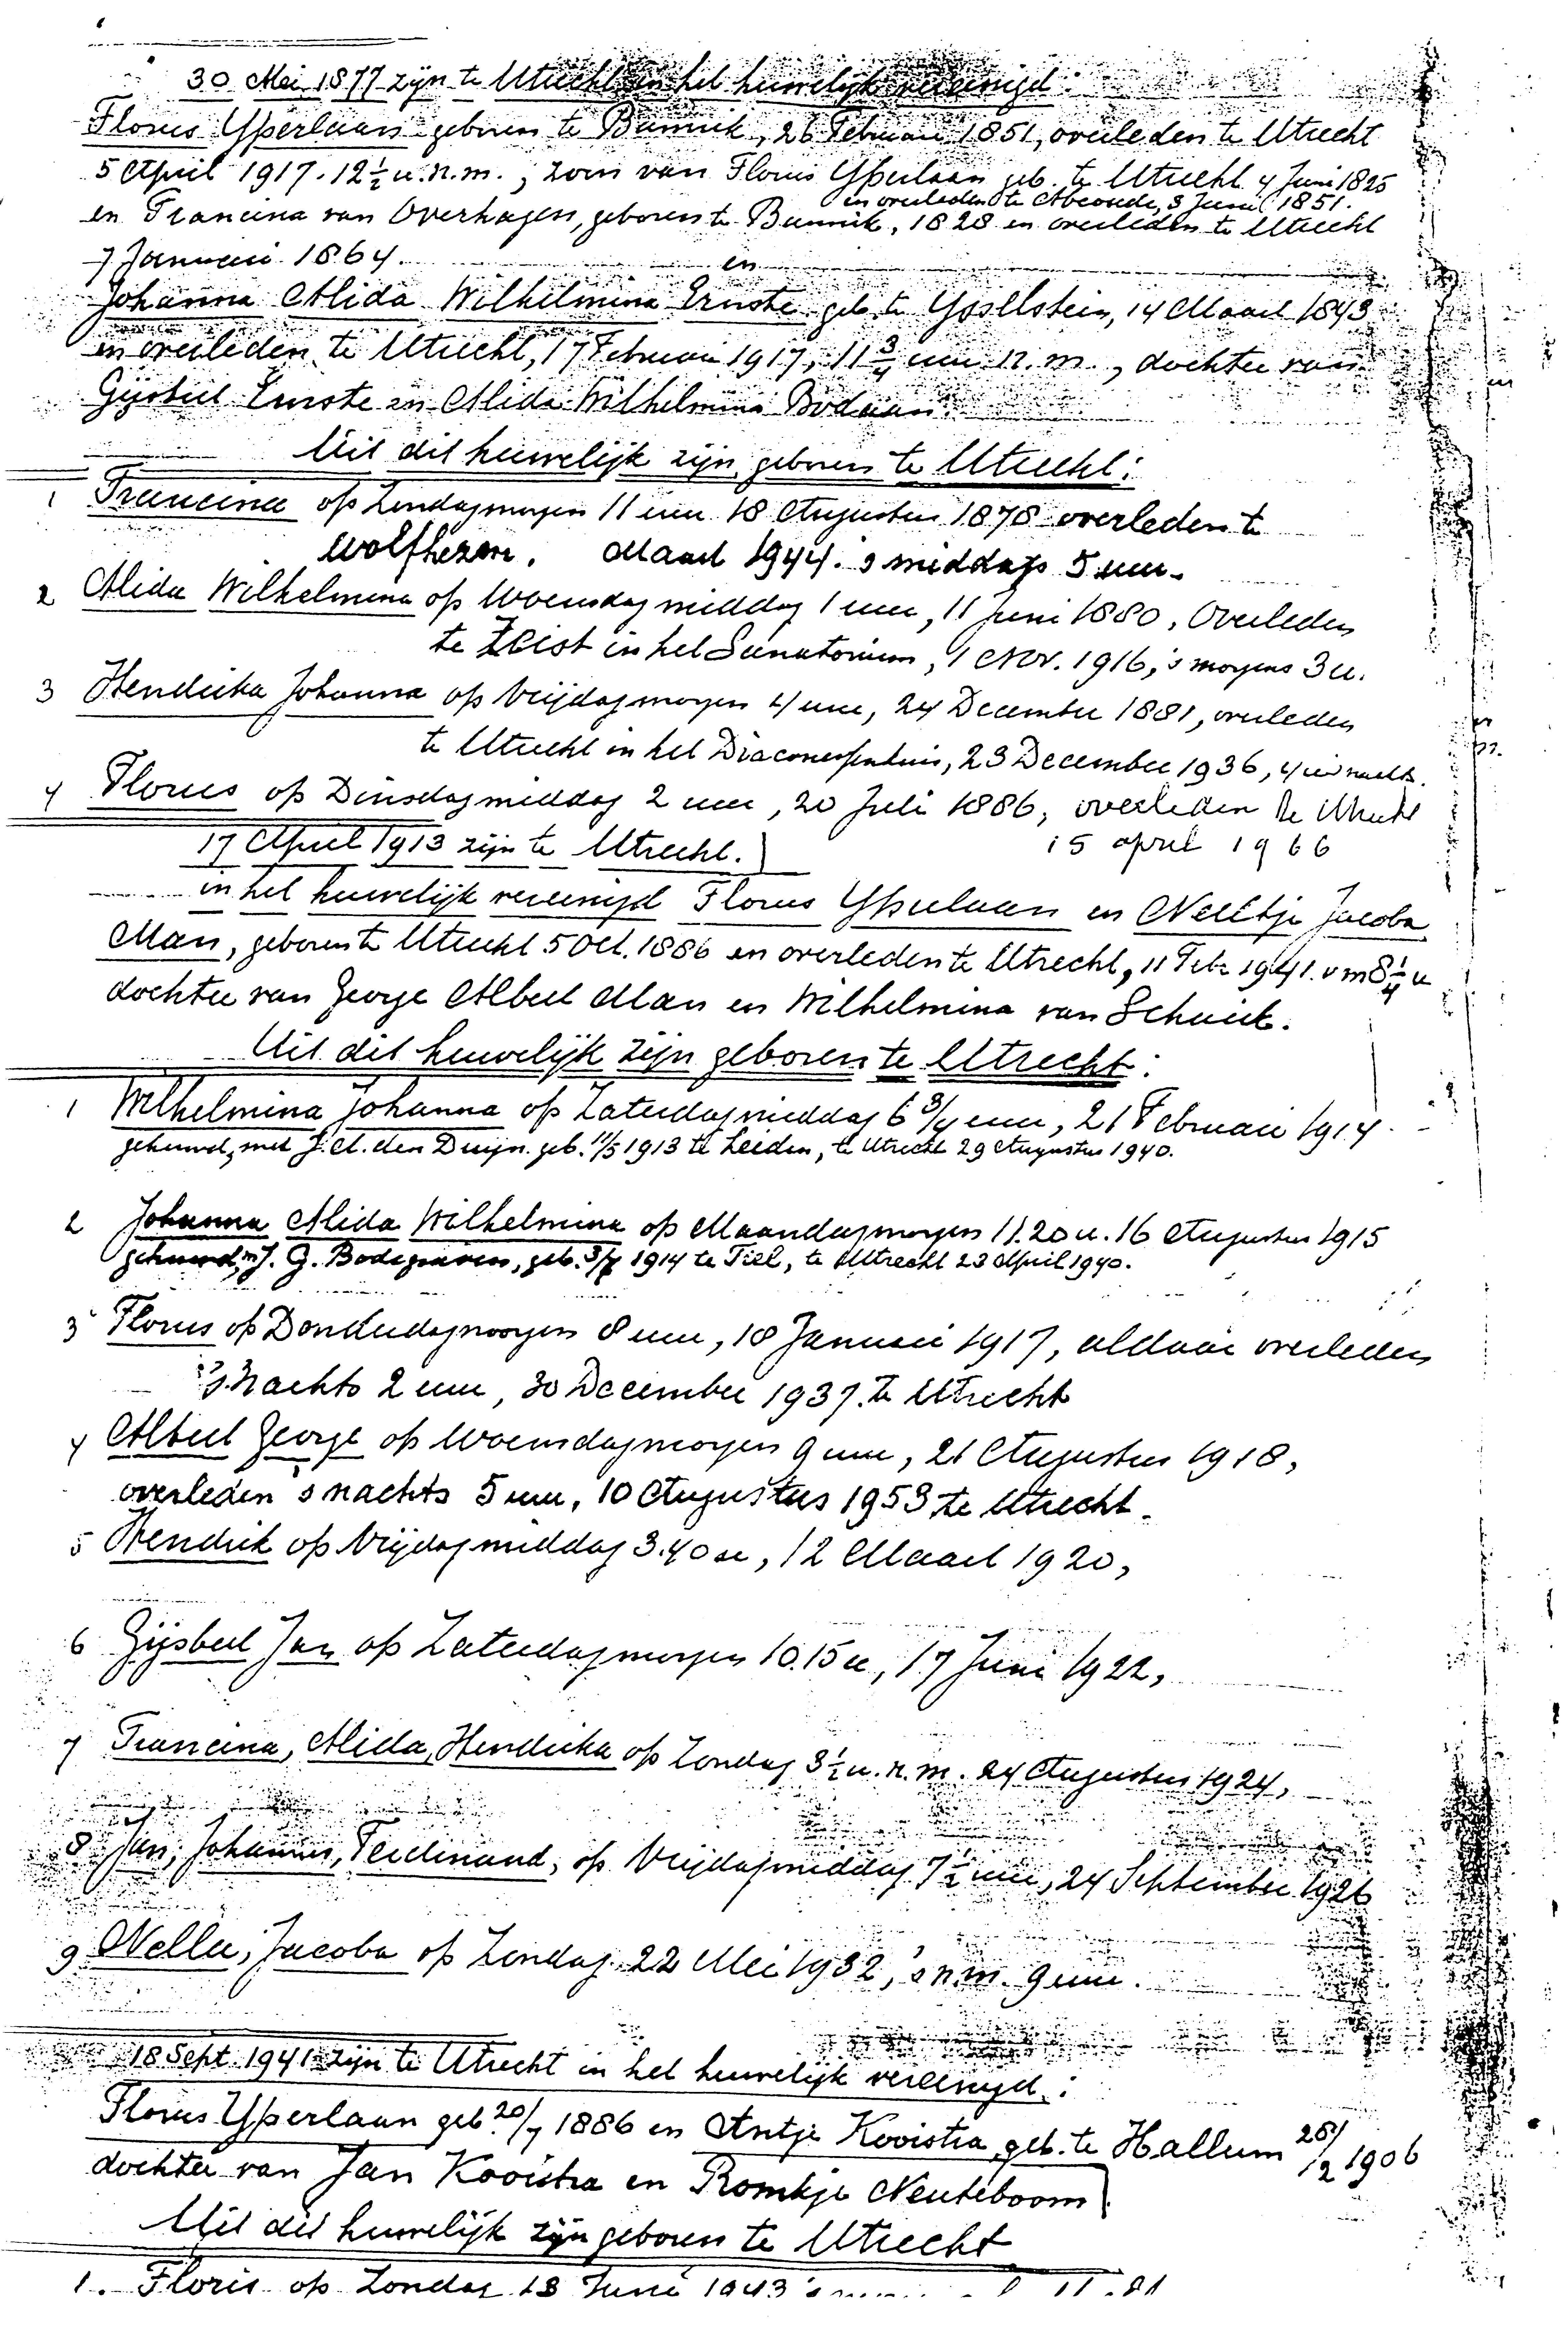 30 Mei 1877 zijn te Utrecht in het huwelijk vereenigd:
Florus Ysperlaan geboren te Bunnik, 26 Februari 1851, overleden te Utrecht
5 April 1917. 12½ u.n.m., zoon van Florus Ysperlaan geb. te Utrecht 4 Juni 1825
en overleden te Abcoude, 3 Juni 1851.
en Francina van Overhagen, geboren te Bunnik, 1828 en overleden te Utrecht
7 Januari 1864.
en
Johanna Alida Wilhelmina Ernste geb. te Ysselstein, 14 Maart 1843
en overleden te Utrecht, 17 Februari 1917, 11¾ uur n.m., dochter van
Gijsbert Ernste en Alida Wilhelmina Bodaan.
Uit dit huwelijk zijn geboren te Utrecht:
1 Francina op Zondagmorgen 11 uur 18 Augustus 1878 overleden te
Wolfhezen. Maart 1944. 's middags 5 uur.
2 Alida Wilhelmina op Woensdagmiddag 1 uur, 11 Juni 1880, Overleden
te Zeist in het Sanatorium, 1 Nov. 1916, 's morgens 3 u.
3 Hendrika Johanna op Vrijdagmorgen 4 uur, 24 December 1881, overleden
te Utrecht in het Diaconessenhuis, 23 December 1936, 4 u 's nachts.
4 Florus op Dinsdagmiddag 2 uur, 20 Juli 1886, overleden te Utrecht
15 april 1966
17 April 1913 zijn te Utrecht.
in het huwelijk vereenigd Florus Ysperlaan en Neeltje Jacoba
Man, geboren te Utrecht 5 Oct. 1886 en overleden te Utrecht, 11 Febr 1941. v m 8¼ u
dochter van George Albert Man en Wilhelmina van Schaick.
Uit dit huwelijk zijn geboren te Utrecht:
1 Wilhelmina Johanna op Zaterdagmiddag 6 3/4 uur, 21 Februari 1914.
gehuwd, met J. A. den Duijn. geb. 11/5 1913 te Leiden, te Utrecht 29 Augustus 1940.
2 Johanna Alida Wilhelmina op Maandagmorgen 11.20 u. 16 Augustus 1915
gehuwd, m J. G. Bodegraven, geb. 3/7 1914 te Tiel, te Utrecht 23 April 1940.
3 Florus op Donderdagmorgen 8 uur, 18 Januari 1917, aldaar overleden
's Nachts 2 uur, 30 December 1937. te Utrecht
4 Albert George op Woensdagmorgen 9 uur, 21 Augustus 1918,
overleden 's nachts 5 uur, 10 Augustus 1953 te Utrecht.
5 Hendrik op Vrijdagmiddag 3.40 u, 12 Maart 1920,
6 Gijsbert Jan op Zaterdagmorgen 10.15 u, 17 Juni 1922,
7 Francina, Alida, Hendrika op Zondag 3½ u. n. m. 24 Augustus 1924,
8 Jan, Johannes, Ferdinand, op Vrijdagmiddag 7½ uur, 24 September 1926
9 Nellie, Jacoba op Zondag 22 Mei 1932, 's n.m. 9 uur.
18 Sept. 1941 zijn te Utrecht in het huwelijk vereenigd:
Florus Ysperlaan geb. 20/7 1886 en Antje Kooistra geb. te Hallum 28/12 1906
dochter van Jan Kooistra en Romkje Neuteboom
Uit dit huwelijk zijn geboren te Utrecht
1. Floris op Zondag 13 Juni 1943